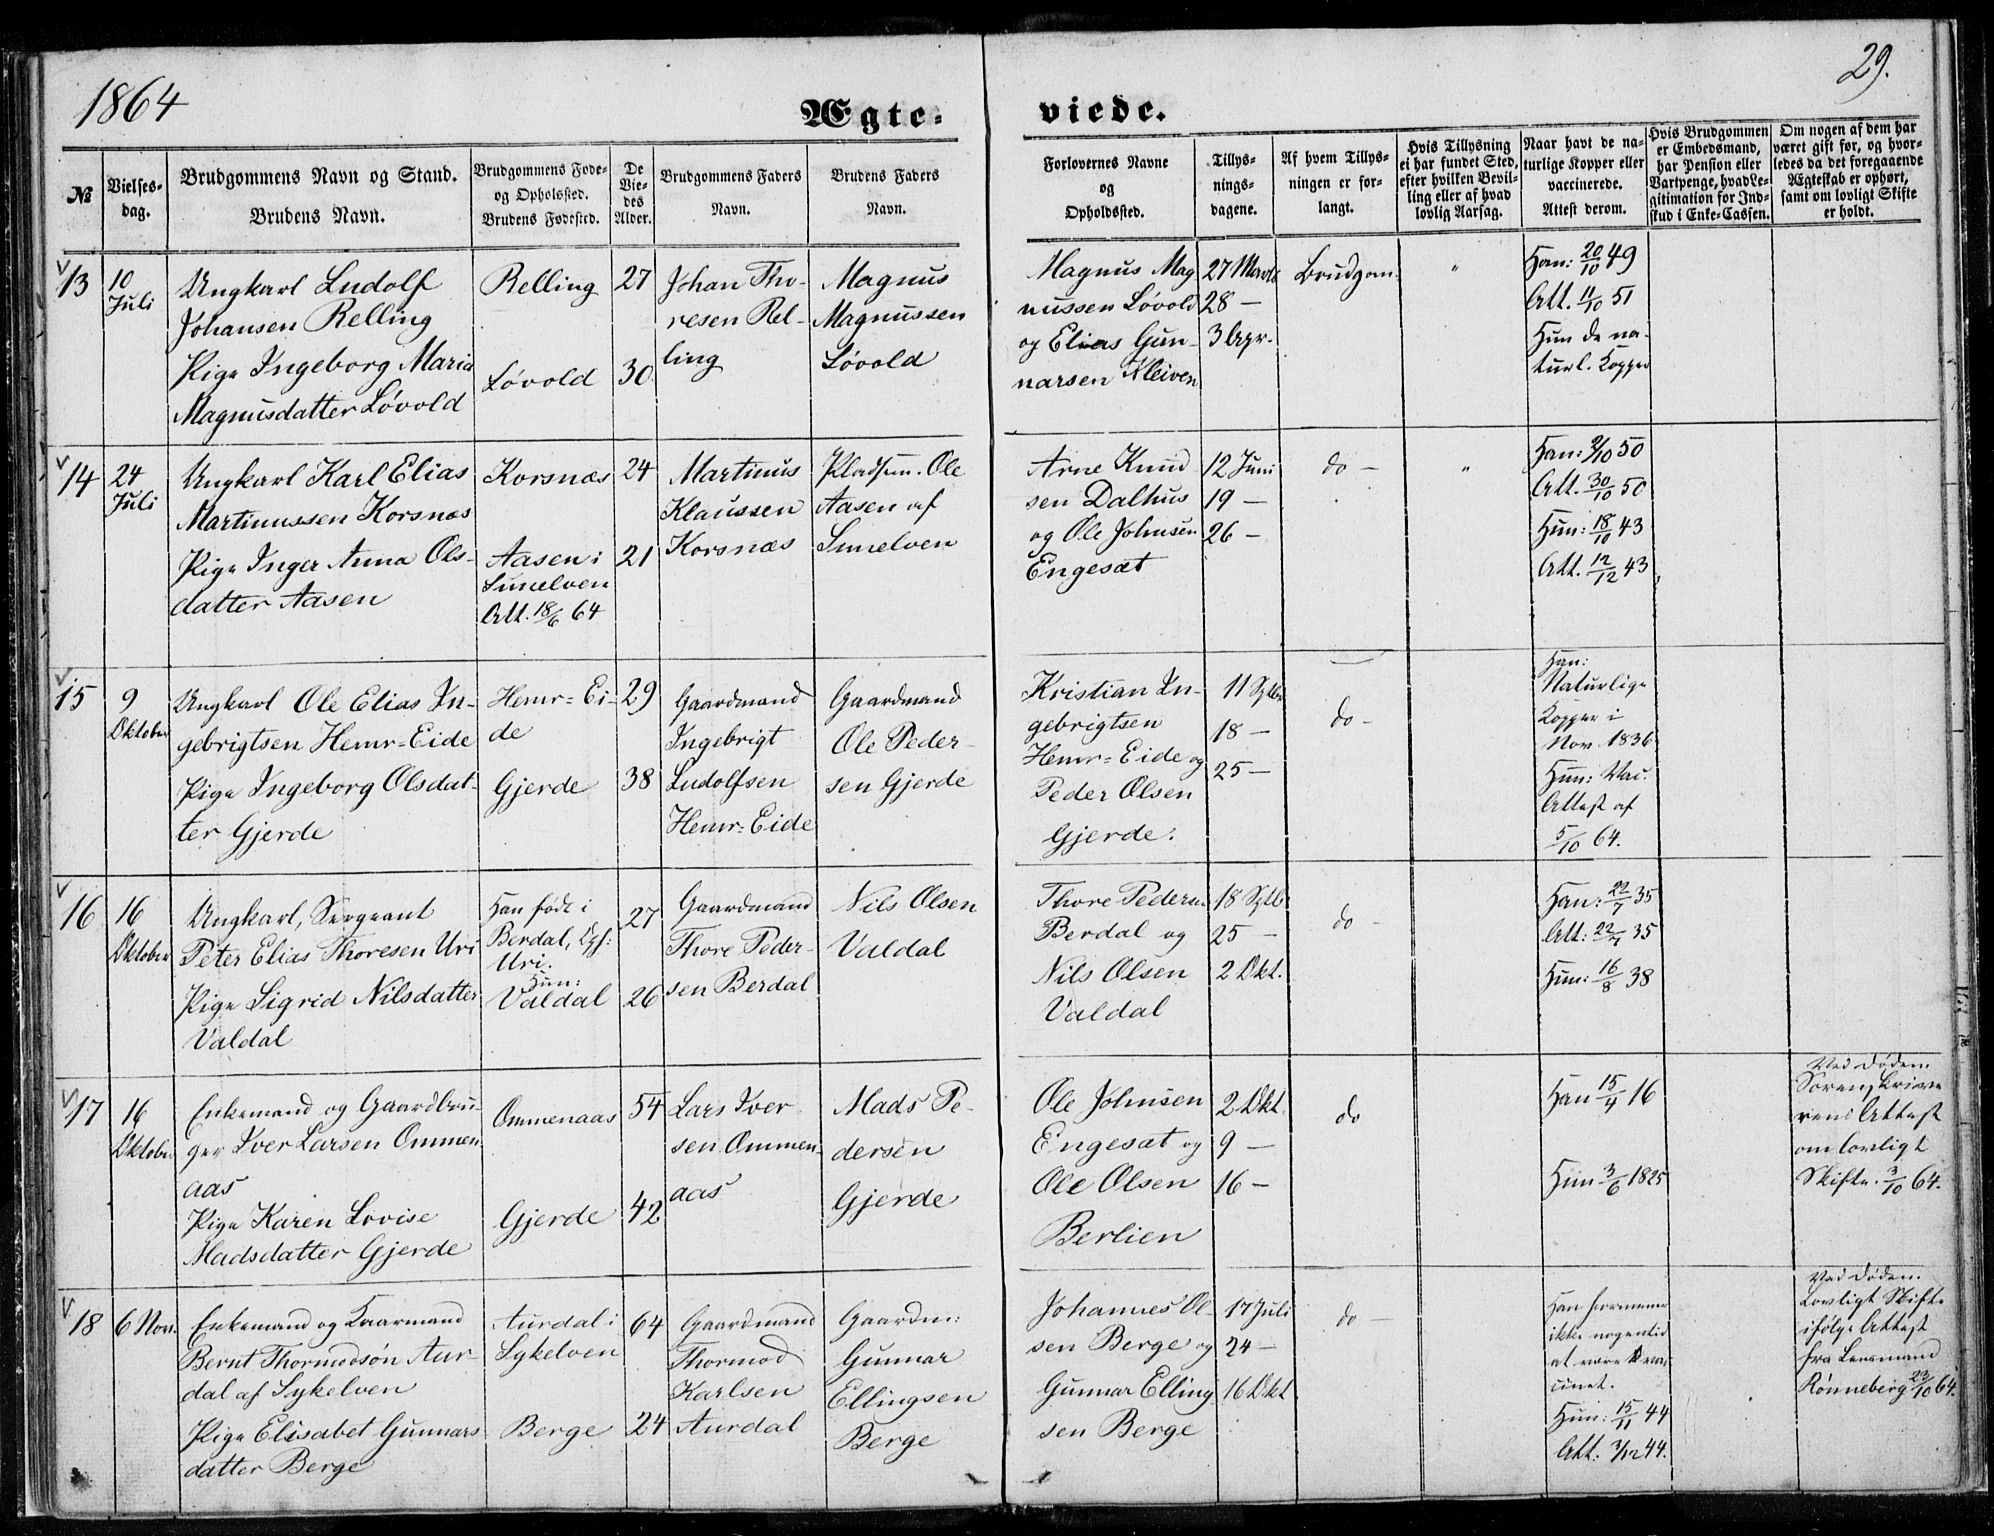 1864
29.
Ægte-
viede.
No
Vielses-
dag.
Brudgommens Navn og Stand.
Brudens Navn.
Brudgommens Føde-
og Opholdssted.
Brudens Fødested.
De
Vie-
des
Alder.
Brudgommens Faders
Navn.
Brudens Faders
Navn.
Forlovernes Navne
og
Opholdssted.
Tillys-
nings-
dagene.
Af hvem Tillys-
ningen er for-
langt.
Hvis Tillysning
ei har fundet Sted,
efter hvilken Bevil-
ling eller af hvad
lovlig Aarsag.
Naar havt de na-
turlige Kopper eller
vaccinerede.
Attest derom.
Hvis Brudgommen
er Embedsmand,
har Pension eller
Vartpenge, hvad Le-
gitimation for Ind-
skud i Enke-Cassen.
Om nogen af dem har
været gift før, og hvor-
ledes da det foregaaende
Ægteskab er ophørt,
samt om lovligt Skifte
er holdt.
13
10
Juli
Ungkarl Ludolf
Johansen Relling
Pige Ingeborg Maria
Magnusdatter Løvold
Relling
Løvold
27
30
Johan Tho-
resen Rel-
ling
Magnus
Magnussen
Løvold
Magnus Mag
nussen Løvold
og Elias Gun-
narsen Kleiven
27 Marts
28 —
3 Apr.
Brudgom.
"
Han: 20/10 49
Att. 11/10 51
Hun de na-
turl. Kopper
14
24
Juli
Ungkarl Karl Elias
Martinussen Korsnæs
Pige Inger Anna Ols-
datter Aasen
Korsnæs
Aasen i
Sunelven
Att. 18/6 64
24
21
Martinus
Klaussen
Korsnæs
Pladsm. Ole
Aasen af
Sunelven
Arne Knud
sen Dalhus
og Ole Johnsen
Engesæt
12 Juni
19 —
26 —
do —
"
Han: 9/10 50
Att. 30/10 50
Hun: 18/10 43
Att. 12/12 43
15
9
Oktober
Ungkarl Ole Elias In-
gebrigtsen Hemr=Eide
Pige Ingeborg Olsdat-
ter Gjerde
Hemr=Ei-
de
Gjerde
29
38
Gaardmand
Ingebrigt
Ludolfsen
Hemr=Eide
Gaardmand
Ole Peder-
sen Gjerde
Kristian In-
gebrigtsen
Hemr=Eide og
Peder Olsen
Gjerde.
11 Sptbr
18 —
25 —
do —
Han:
Naturlige
Kopper i
Nov. 1836
Hun: Vac.
Attest af
5/10 64.
16
16
Oktober
Ungkarl, Sergeant
Peter Elias Thoresen Uri
Pige Sigrid Nilsdatter
Valdal
Han født i
Berdal, Opf:
Uri.
Hun:
Valdal
27
26
Gaardmand
Thore Peder-
sen Berdal
Nils Olsen
Valdal
Thore Pedersen
Berdal og
Nils Olsen
Valdal
18 Sptb.
25 —
2 Okt.
do —
Han: 22/7 35
Att: 22/7 35
Hun: 16/8 38
17
16
Oktober
Enkemand og Gaardbru-
ger Iver Larsen Ommen
aas
Pige Karen Lovise
Madsdatter Gjerde
Ommenaas
Gjerde
54
42
Lars Iver
sen Ommen
aas
Mads Pe-
dersen
Gjerde
Ole Johnsen
Engesæt og
Ole Olsen
Berlien
2 Okt.
9 —
16 —
do
Han 15/4 16
Hun 3/6 1825
Ved Døden
Sorenskrive
rens Attest
om lovligt
Skifte. 3/10 64.
18
6 Nov.
Enkemand og Kaarmand
Bernt Thormodsøn Aur-
dal af Sykelven
Pige Elisabet Gunnars
datter Berge
Aurdal i
Sykelven
Berge
64
24
Gaardmand
Thormod
Karlsen
Aurdal
Gaardm:
Gunnar
Ellingsen
Berge
Johannes Ol-
sen Berge og
Gunnar Elling
sen Berge
17 Juli
24 —
16 Okt.
do —
Han
ikke nogentid
at være vac
cinet.
Hun: 15/11 44
Att: 3/12 44.
Ved Døden.
Lovligt Skifte
ifølge Attest
fra Lensmand
Rønneberg 23/10 64.